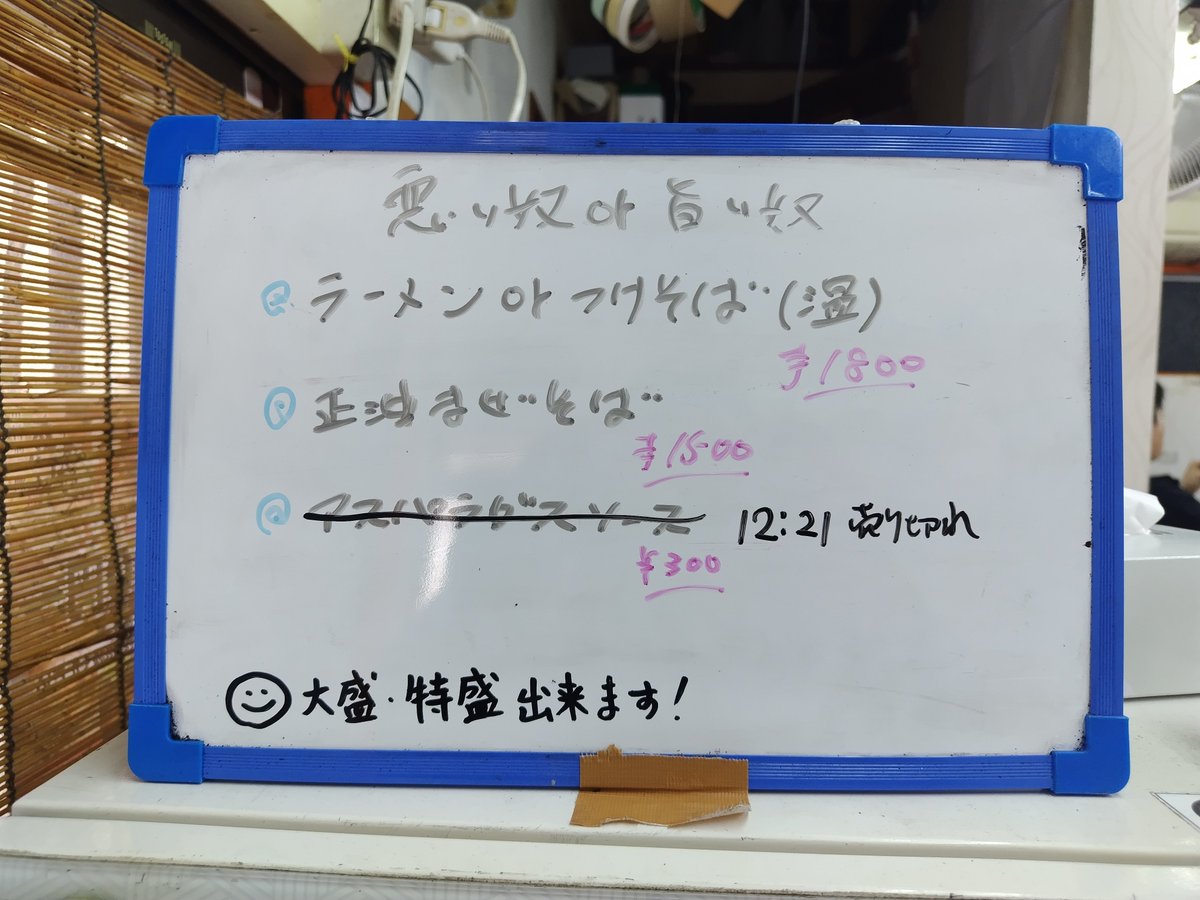 悪い奴or旨い奴
ラーメン or つけそば(温)
¥1800
正油まぜそば
¥1500
アスパラガスソース 12:21 売り切れ
¥300
大盛・特盛 出来ます!